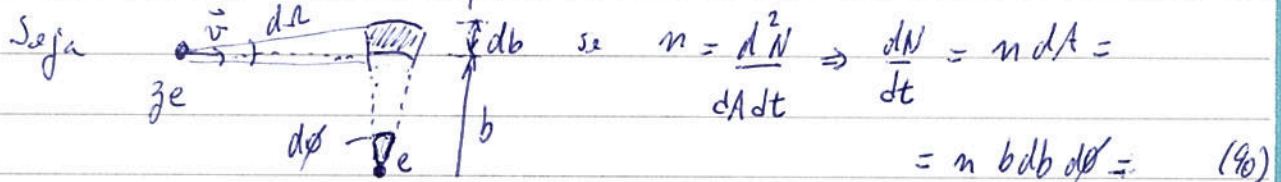 Seja v⃗ dΩ db se n = d²N/dAdt ⇒ dN/dt = n dA =
ze
dφ e b = n b db dφ = (90)